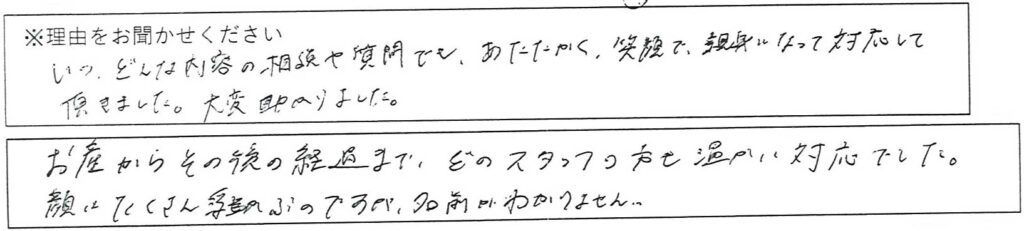 ※理由をお聞かせください
いつ、どんな内容の相談や質問でも、あたたかく、笑顔で、親身になって対応して
頂きました。大変助かりました。
お産からその後の経過まで、どのスタッフの方も温かい対応でした。
顔はたくさん浮かぶのですが、名前がわかりません…